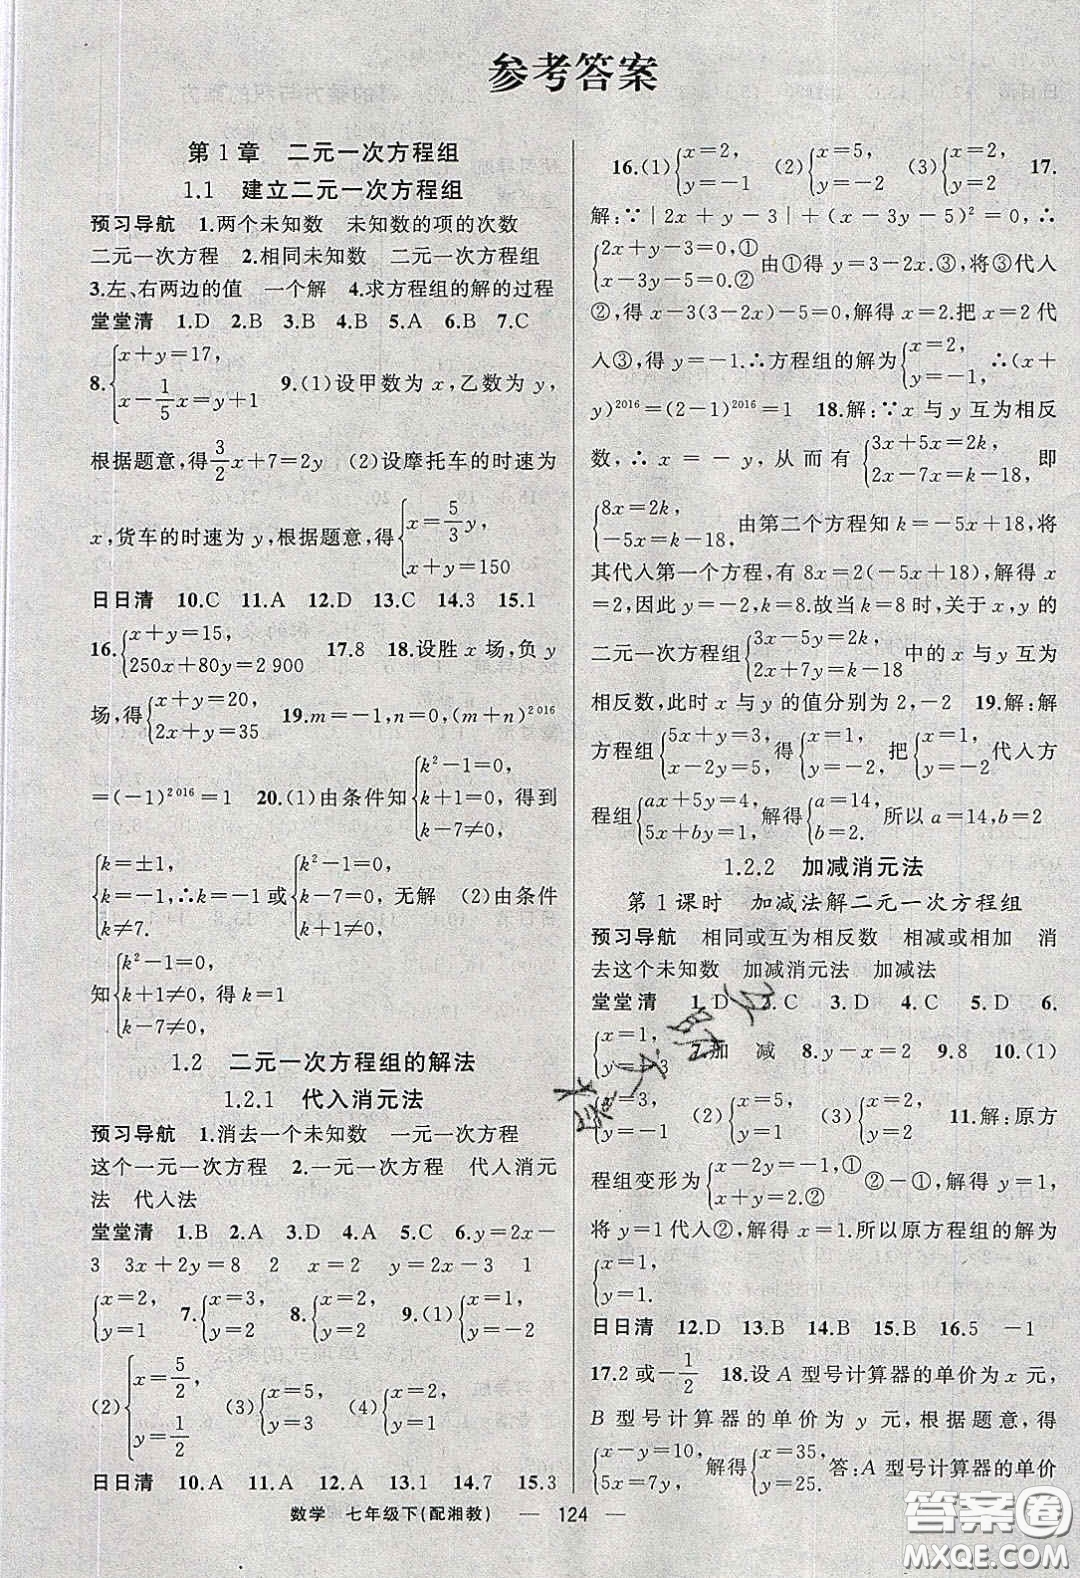 参考答案
第1章 二元一次方程组
1.1 建立二元一次方程组
预习导航 1.两个未知数 未知数的项的次数
二元一次方程 2.相同未知数 二元一次方程组
3.左、右两边的值 一个解 4.求方程组的解的过程
堂堂清 1.D 2.B 3.B 4.B 5.A 6.B 7.C
8.{x+y=17, x-1/5x=y+1 9.(1)设甲数为x,乙数为y,
根据题意,得3/2x+7=2y (2)设摩托车的时速为
x,货车的时速为y,根据题意,得{x=5/3y, x=y+150
日日清 10.C 11.A 12.D 13.C 14.3 15.1
16.{x+y=15, 250x+80y=2 900 17.8 18.设胜x场,负y
场,得{x+y=20, 2x+y=35 19.m=-1,n=0,(m+n)²⁰¹⁶
=(-1)²⁰¹⁶=1 20.(1)由条件知{k²-1=0, k+1=0, k-7≠0, 得到
{k=±1, k=-1, k≠7. ∴k=-1或{k²-1=0, k-7=0, k+1≠0, 无解 (2)由条件
知{k²-1=0, k+1≠0, k-7≠0, 得k=1
1.2 二元一次方程组的解法
1.2.1 代入消元法
预习导航 1.消去一个未知数 一元一次方程
这个一元一次方程 2.一元一次方程 代入消元
法 代入法
堂堂清 1.B 2.A 3.D 4.D 5.C 6.y=2x-
3 3x+2y=8 2 x=2 y=2x-3 1
{x=2, y=1 7.{x=3, y=2 8.{x=2, y=2 9.(1){x=1, y=-2
(2){x=5/2, y=1/2 (3){x=5, y=3 (4){x=6, y=4
日日清 10.A 11.A 12.A 13.1 14.7 15.3
数学 七年级下(配湘教) — 124 —
16.(1){x=2, y=-1 (2){x=5, y=2 (3){x=-2, y=2 17.
解:∵|2x+y-3|+(x-3y-5)²=0,∴
{2x+y-3=0,① x-3y-5=0.② 由①得y=3-2x.③,将③代入
②,得x-3(3-2x)-5=0,解得x=2.把x=2代
入③,得y=-1.∴方程组的解为{x=2, y=-1, ∴(x+
y)²⁰¹⁶=(2-1)²⁰¹⁶=1 18.解:∵x与y互为相反
数,∴x=-y,从而有{3x+5x=2k, 2x-7x=k-18, 即
{8x=2k, -5x=k-18, 由第二个方程知k=-5x+18,将
其代入第一个方程,有8x=2(-5x+18),解得x
=2,因此y=-2,k=8.故当k=8时,关于x,y的
二元一次方程组{3x-5y=2k, 2x+7y=k-18中的x与y互为
相反数,此时x与y的值分别为2,-2 19.解:解
方程组{5x+y=3, x-2y=5, 得{x=1, y=-2. 把{x=1, y=-2代入方
程组{ax+5y=4, 5x+by=1, 解得{a=14, b=2. 所以a=14,b=2
1.2.2 加减消元法
第1课时 加减法解二元一次方程组
预习导航 相同或互为相反数 相减或相加 消
去这个未知数 加减消元法 加减法
堂堂清 1.D 2.C 3.D 4.C 5.D 6.
{x=1, 7.加 减 8.y-x=2 9.8 10.(1)
{x=3, y=-1 (2){x=5, y=1 (3){x=2, y=1 11.解:原方
程组变形为{x-2y=-1,① x+y=2.② ②-①,解得y=1,
将y=1代入②,解得x=1.所以原方程组的解为
{x=1, y=1.
日日清 12.D 13.B 14.B 15.B 16.5 -1
17.2或-1/2 18.设A型号计算器的单价为x元,
B型号计算器的单价为y元,根据题意,得
{x-y=10, 5x=7y, 解得{x=35, y=25. 答:A型号计算器的单价
答案圈
MXQE.COM